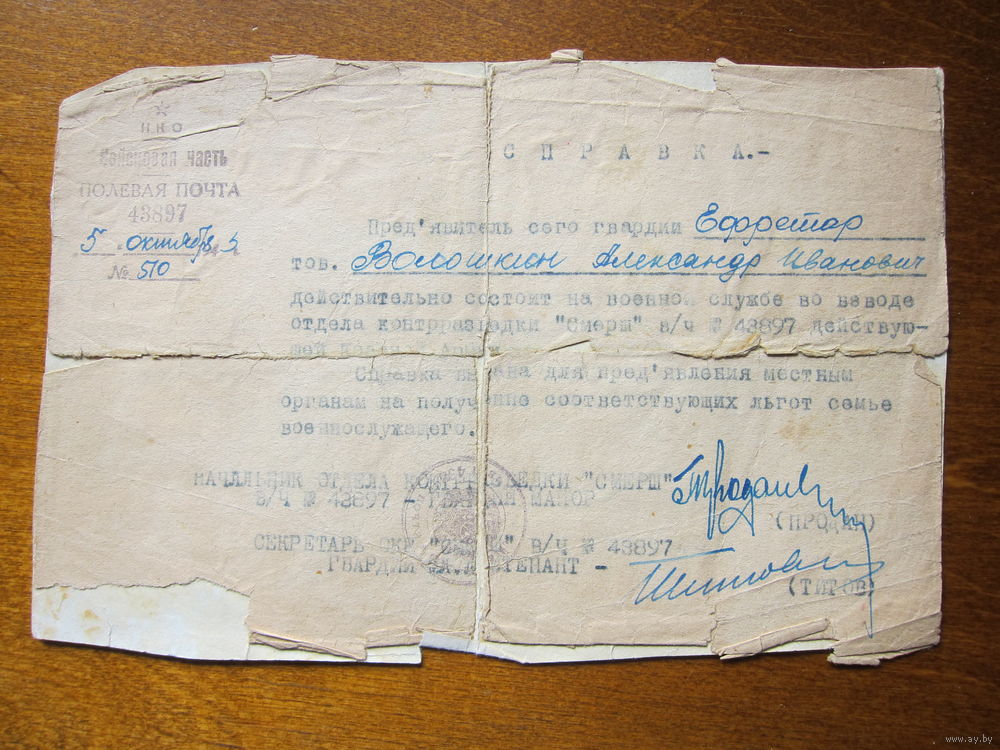 НКО
Войсковая часть
ПОЛЕВАЯ ПОЧТА
43897
5 октября
№ 510
СПРАВКА.-
Пред'явитель сего гвардии Ефрейтор
тов. Волошкин Александр Иванович
действительно состоит на военной службе во взводе
отдела контрразведки "Смерш" в/ч № 43897 действую-
щей
Справка выдана для пред'явления местным
органам на получение соответствующих льгот семье
военнослужащего.
НАЧАЛЬНИК ОТДЕЛА КОНТРРАЗВЕДКИ "СМЕРШ"
В/Ч № 43897 - ГВАРДИИ МАЙОР
(ПРОДАН)
СЕКРЕТАРЬ ОКР "СМЕРШ" В/Ч № 43897
ГВАРДИИ ЛЕЙТЕНАНТ -
(ТИТОВ)
www.ay.by